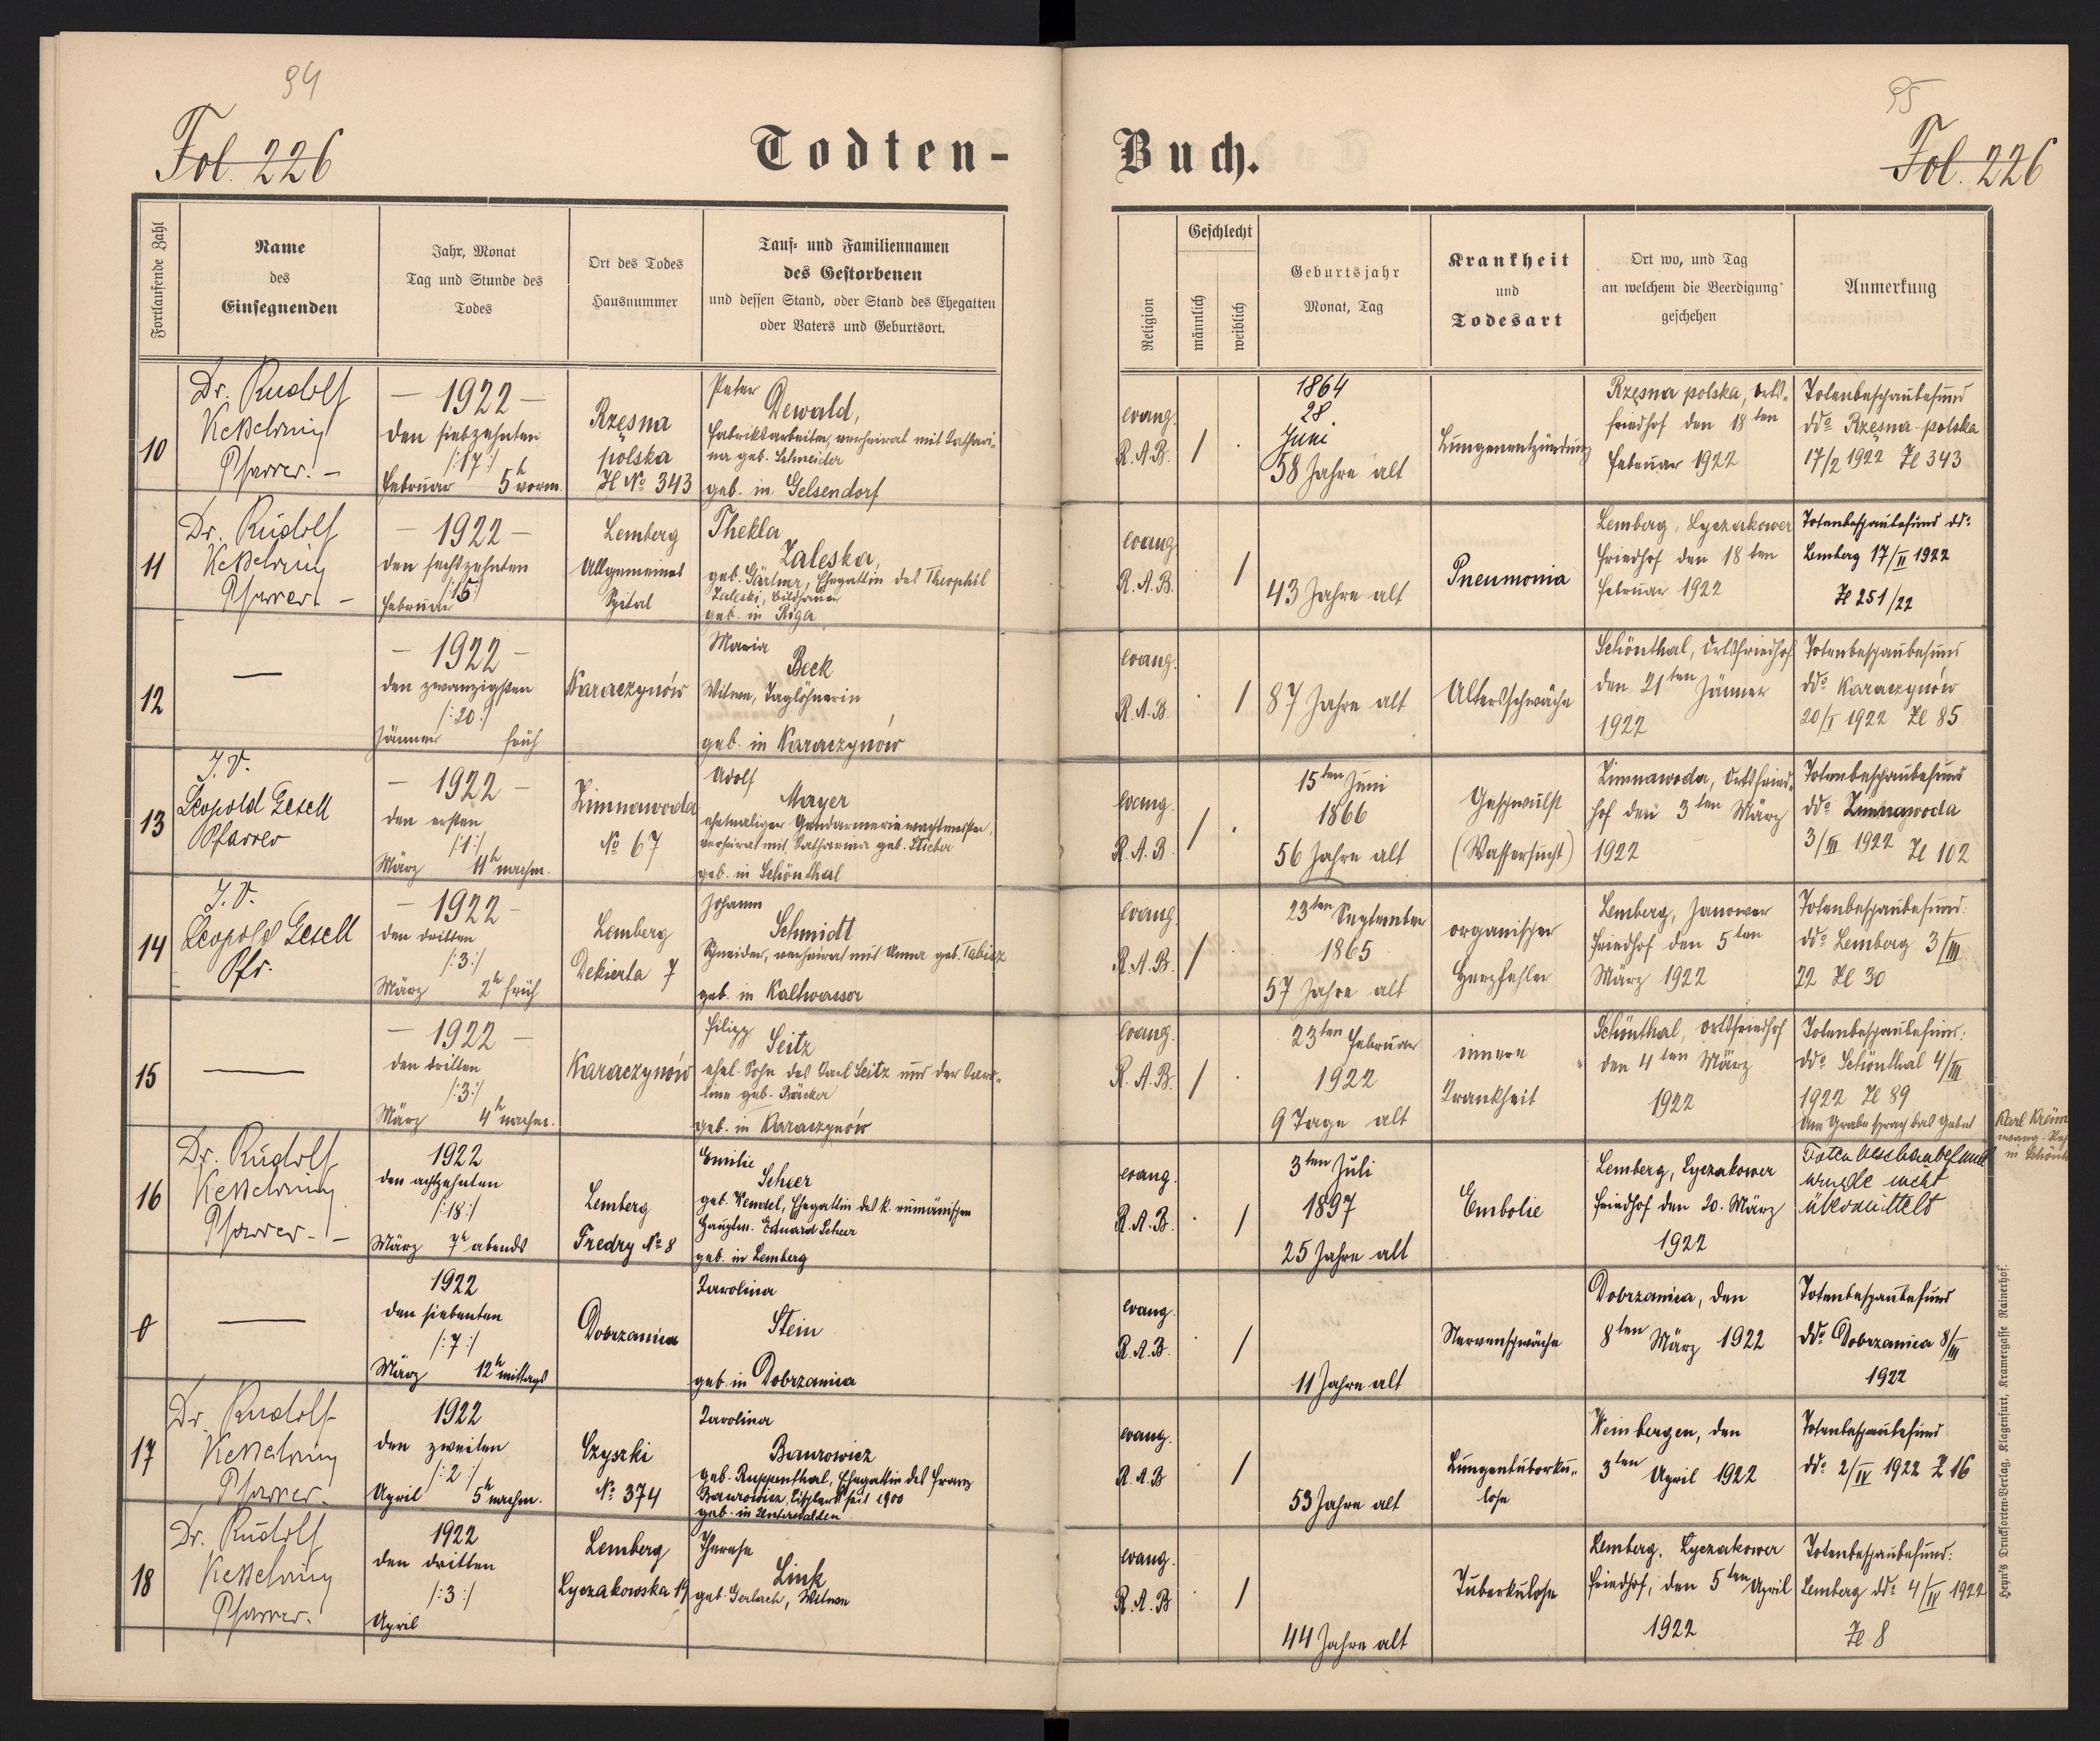 94
95
Fol. 226
Todten-
Buch.
Fol. 226
Fortlaufende Zahl
Name
des
Einsegnenden
Jahr, Monat
Tag und Stunde des
Todes
Ort des Todes
Hausnummer
Tauf- und Familiennamen
des Gestorbenen
und dessen Stand, oder Stand des Ehegatten
oder Vaters und Geburtsort.
Religion
Geschlecht
männlich
weiblich
Geburtsjahr
Monat, Tag
Krankheit
und
Todesart
Ort wo, und Tag
an welchem die Beerdigung
geschehen
Anmerkung
10
Dr. Rudolf
Keßelring
Pfarrer. –
– 1922 –
den siebzehnten
/:17:/
Februar 5h vorm.
Rzęsna
polska
H No 343
Peter
Dewald,
Fabriksarbeiter, verheirat mit Kathari-
na geb. Schneider
geb. in Gelsendorf
evang.
R.A.B.
/ ·
1864
28
Juni
58 Jahre alt
Lungenentzündung
Rzęsna polska, Orts-
friedhof den 18ten
Februar 1922
Totenbeschaubefund
ddo Rzęsna-polska
17/2 1922 Zl 343
11
Dr. Rudolf
Keßelring
Pfarrer. –
– 1922 –
den sechszehnten
Februar
Lemberg
Allgemeines
Spital
Thekla
Zaleska,
geb. Gärtner, Ehegattin des Theophil
Zaleski, Bildhauer
geb. in Riga
evang.
R.A.B.
· /
43 Jahre alt
Pneumonia
Lemberg, Lyczakower
Friedhof den 18ten
Februar 1922
Totenbeschaubefund ddo
Lemberg 17/II 1922
Zl 251/22
12
—
– 1922 –
den zwanzigsten
/:20:/
Jänner früh
Karaczynów
Maria
Beck
Witwe, Taglöhnerin
geb. in Karaczynów
evang.
R.A.B.
· /
87 Jahre alt
Altersschwäche
Schönthal, Ortsfriedhof
den 21ten Jänner
1922
Totenbeschaubefund
ddo Karaczynów
20/I 1922 Zl 85
13
I.V.
Leopold Gesell
Pfarrer
– 1922 –
den ersten
/:1:/
März 11h nachm.
Zimnawoda
No 67
Adolf
Mayer
ehemaliger Gendarmeriewachtmeister,
verheirat mit Katharina geb. Stieber
geb. in Schönthal
evang.
R.A.B.
/ ·
15ten Juni
1866
56 Jahre alt
Geschwulst
(Wassersucht)
Zimnawoda, Ortsfried-
hof den 3ten März
1922
Totenbeschaubefund
ddo Zimnawoda
3/III 1922 Zl 102
14
I.V.
Leopold Gesell
Pfr.
– 1922 –
den dritten
/:3:/
März 2h früh
Lemberg
Dekierta 7
Johann
Schmidt
Schneider, verheirat mit Anna geb. Tabisz
geb. in Kaltwasser
evang.
R.A.B.
/ ·
23ten September
1865
57 Jahre alt
organischer
Herzfehler
Lemberg, Janower
Friedhof den 5ten
März 1922
Totenbeschaubefund:
ddo Lemberg 3/III
22 Zl 30
15
—
– 1922 –
den dritten
/:3:/
März 4h nachm.
Karaczynów
Filipp
Seitz
ehel. Sohn des Karl Seitz und der Karo-
line geb. Bäcker
geb. in Karaczynów
evang.
R.A.B.
/ ·
23ten Februar
1922
9 Tage alt
innere
Krankheit
Schönthal, Ortsfriedhof
den 4ten März
1922
Totenbeschaubefund:
ddo Schönthal 4/III
1922 Zl 89
Am Grabe sprach das Gebet
Karl
evang.
in
16
Dr. Rudolf
Keßelring
Pfarrer. –
1922
den achtzehnten
/:18:/
März 7h abends
Lemberg
Fredry No 8
Emilie
Scheer
geb. Wendel, Ehegattin des k. rumänischen
Hauptm. Eduard Scheer
geb. in Lemberg
evang.
R.A.B.
· /
3ten Juli
1897
25 Jahre alt
Embolie
Lemberg, Lyczakower
Friedhof den 20. März
1922
Totenbeschaubefund
wurde nicht
übermittelt
0
—
1922
den siebenten
/:7:/
März 12h mittags
Dobrzanica
Karolina
Stein
geb. in Dobrzanica
evang.
R.A.B.
· /
11 Jahre alt
Nervenschwäche
Dobrzanica, den
8ten März 1922
Totenbeschaubefund
ddo Dobrzanica 8/III
1922
17
Dr. Rudolf
Keßelring
Pfarrer.
1922
den zweiten
/:2:/
April 5h nachm.
Czyszki
No 374
Karolina
Baurowicz
geb. Ruppenthal, Ehegattin des Franz
Baurowicz, Tischlers seit 1900
geb. in Unterwalden
evang.
R.A.B
· /
53 Jahre alt
Lungentuberku-
lose
Weinbergen, den
3ten April 1922
Totenbeschaubefund
ddo 2/IV 1922 Z 16
18
Dr. Rudolf
Keßelring
Pfarrer.
1922
den dritten
/:3:/
April
Lemberg
Lyczakowska 19
Therese
Link
geb. Gerlach, Witwe
evang.
R.A.B
· /
44 Jahre alt
Tuberkulose
Lemberg, Lyczakower
Friedhof, den 5ten April
1922
Totenbeschaubefund:
Lemberg ddo 4/IV 1922
Zl 8
Heyn's Drucksorten-Verlag, Klagenfurt, Kramergasse Rainerhof.